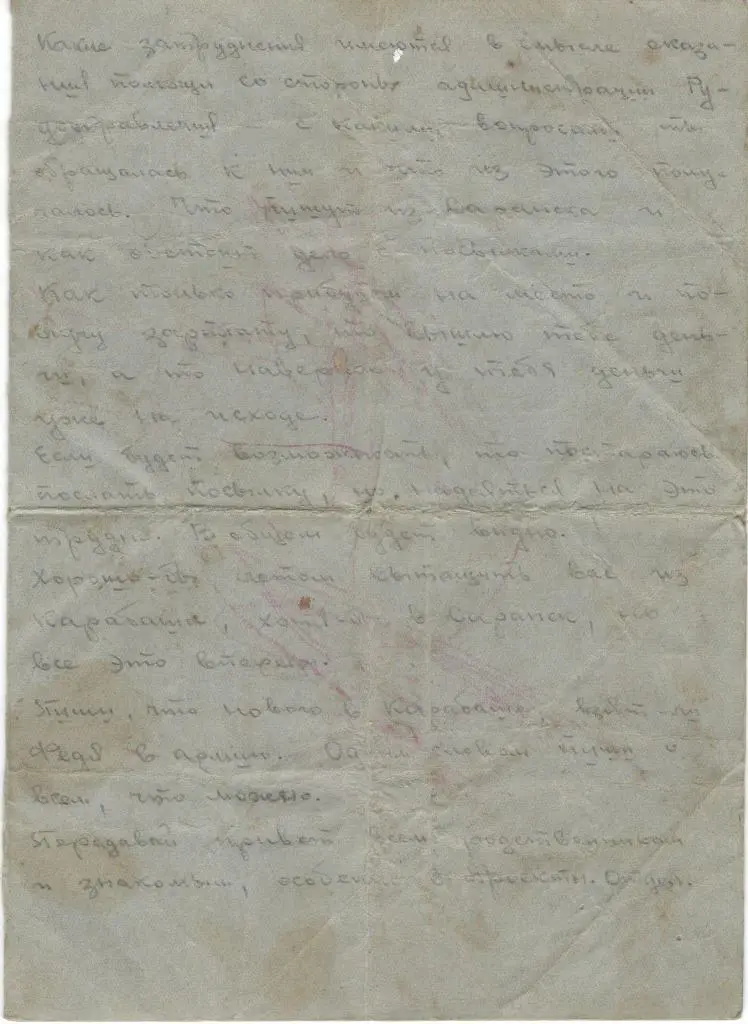 Какие затруднения имеются в смысле оказа-
ния помощи со стороны администрации Ру-
доуправления – с какими вопросами ты
обращалась к ним и что из этого полу-
чалось. Что пишут из Саранска и
как обстоит дело с посылками.
Как только прибуду на место и по-
лучу зарплату, то вышлю тебе день-
ги, а то наверное у тебя деньги
уже на исходе.
Если будет возможность, то постараюсь
послать посылку, но надеяться на это
трудно. В общем будет видно.
Хорошо-бы летом вытащить вас из
Карабаша, хотя-бы в Саранск, но
все это впереди.
Пиши, что нового в Карабаше, взят-ли
Федя в армию. Одним словом пиши о
всем, что можно.
Передавай привет всем родственникам
и знакомым, особенно в Проектн. Отдел.